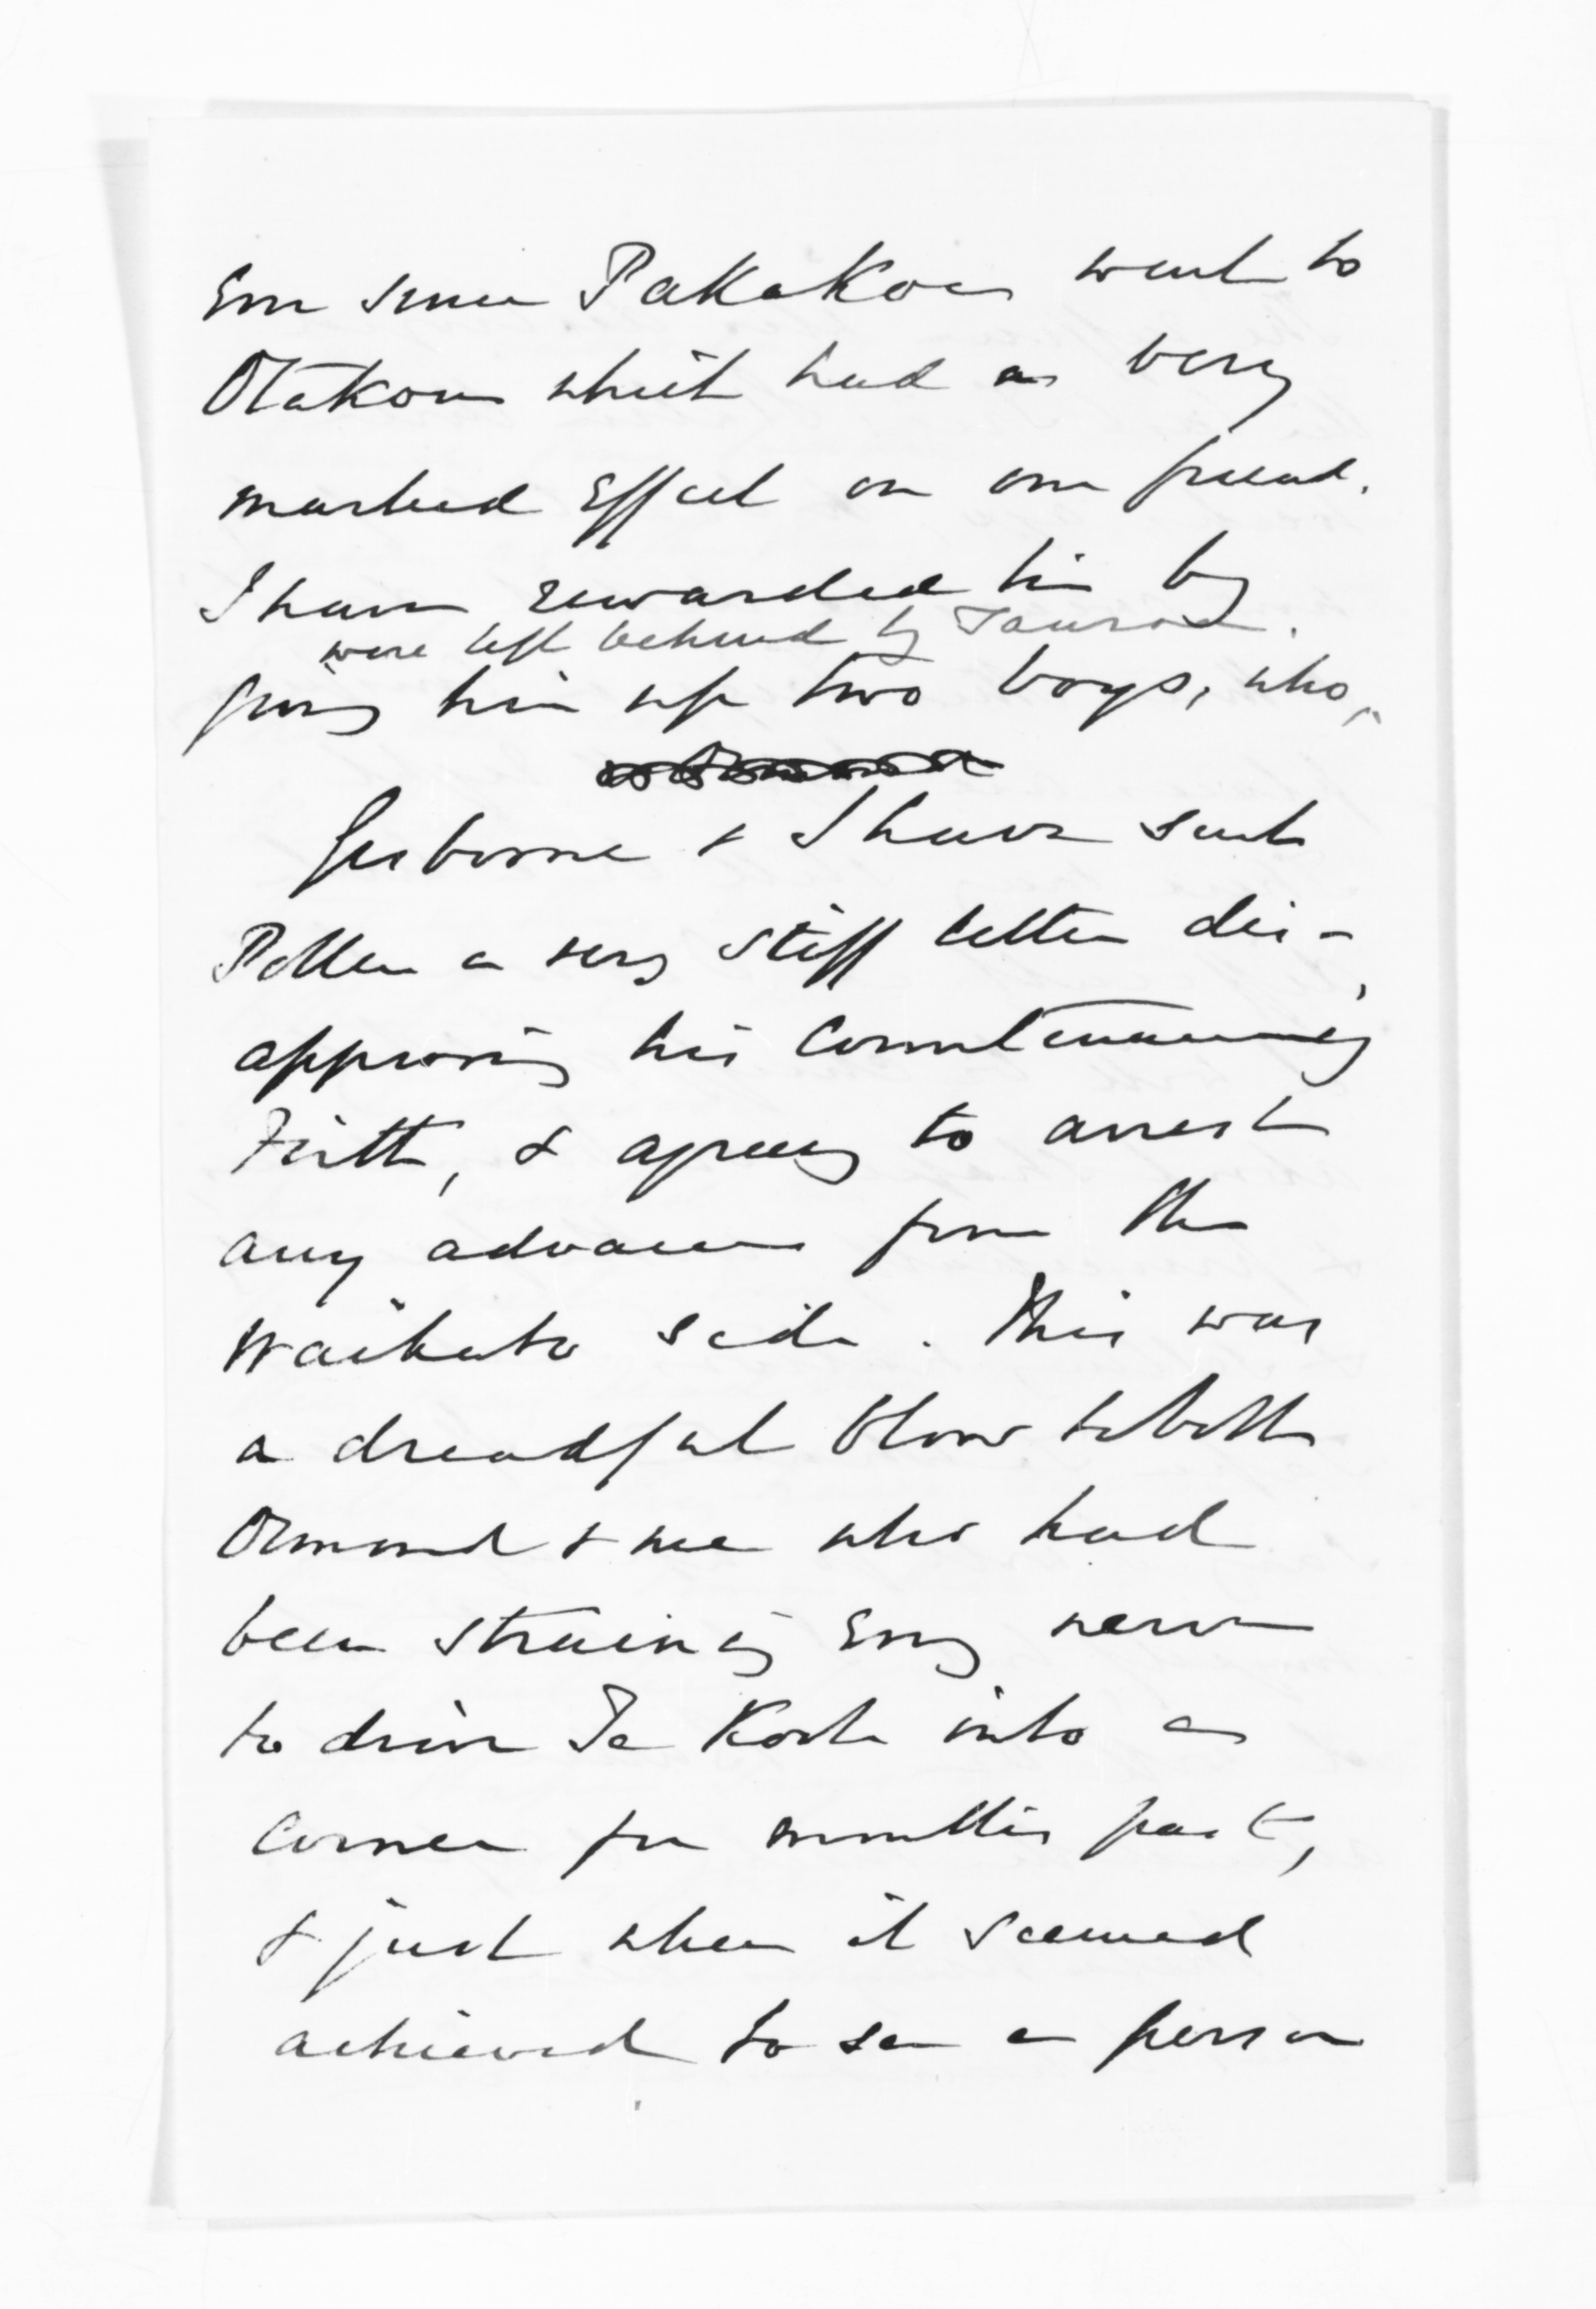 Ever since Pakakoi went to
Otakou which had a very
marked effect on our friend.
I have rewarded him by
were left behind by Tauroa.
giving him up two boys, who,
Gisborne & I have sent
Pollen a very stiff letter dis-
approving his countenancing
Firth, & agreeing to arrest
any advance from the
Waikato side. This was
a dreadful blow to both
Ormond & me who had
been straining every nerve
to drive Te Kooti into a
corner for months past,
& just when it seemed
achieved to see a person